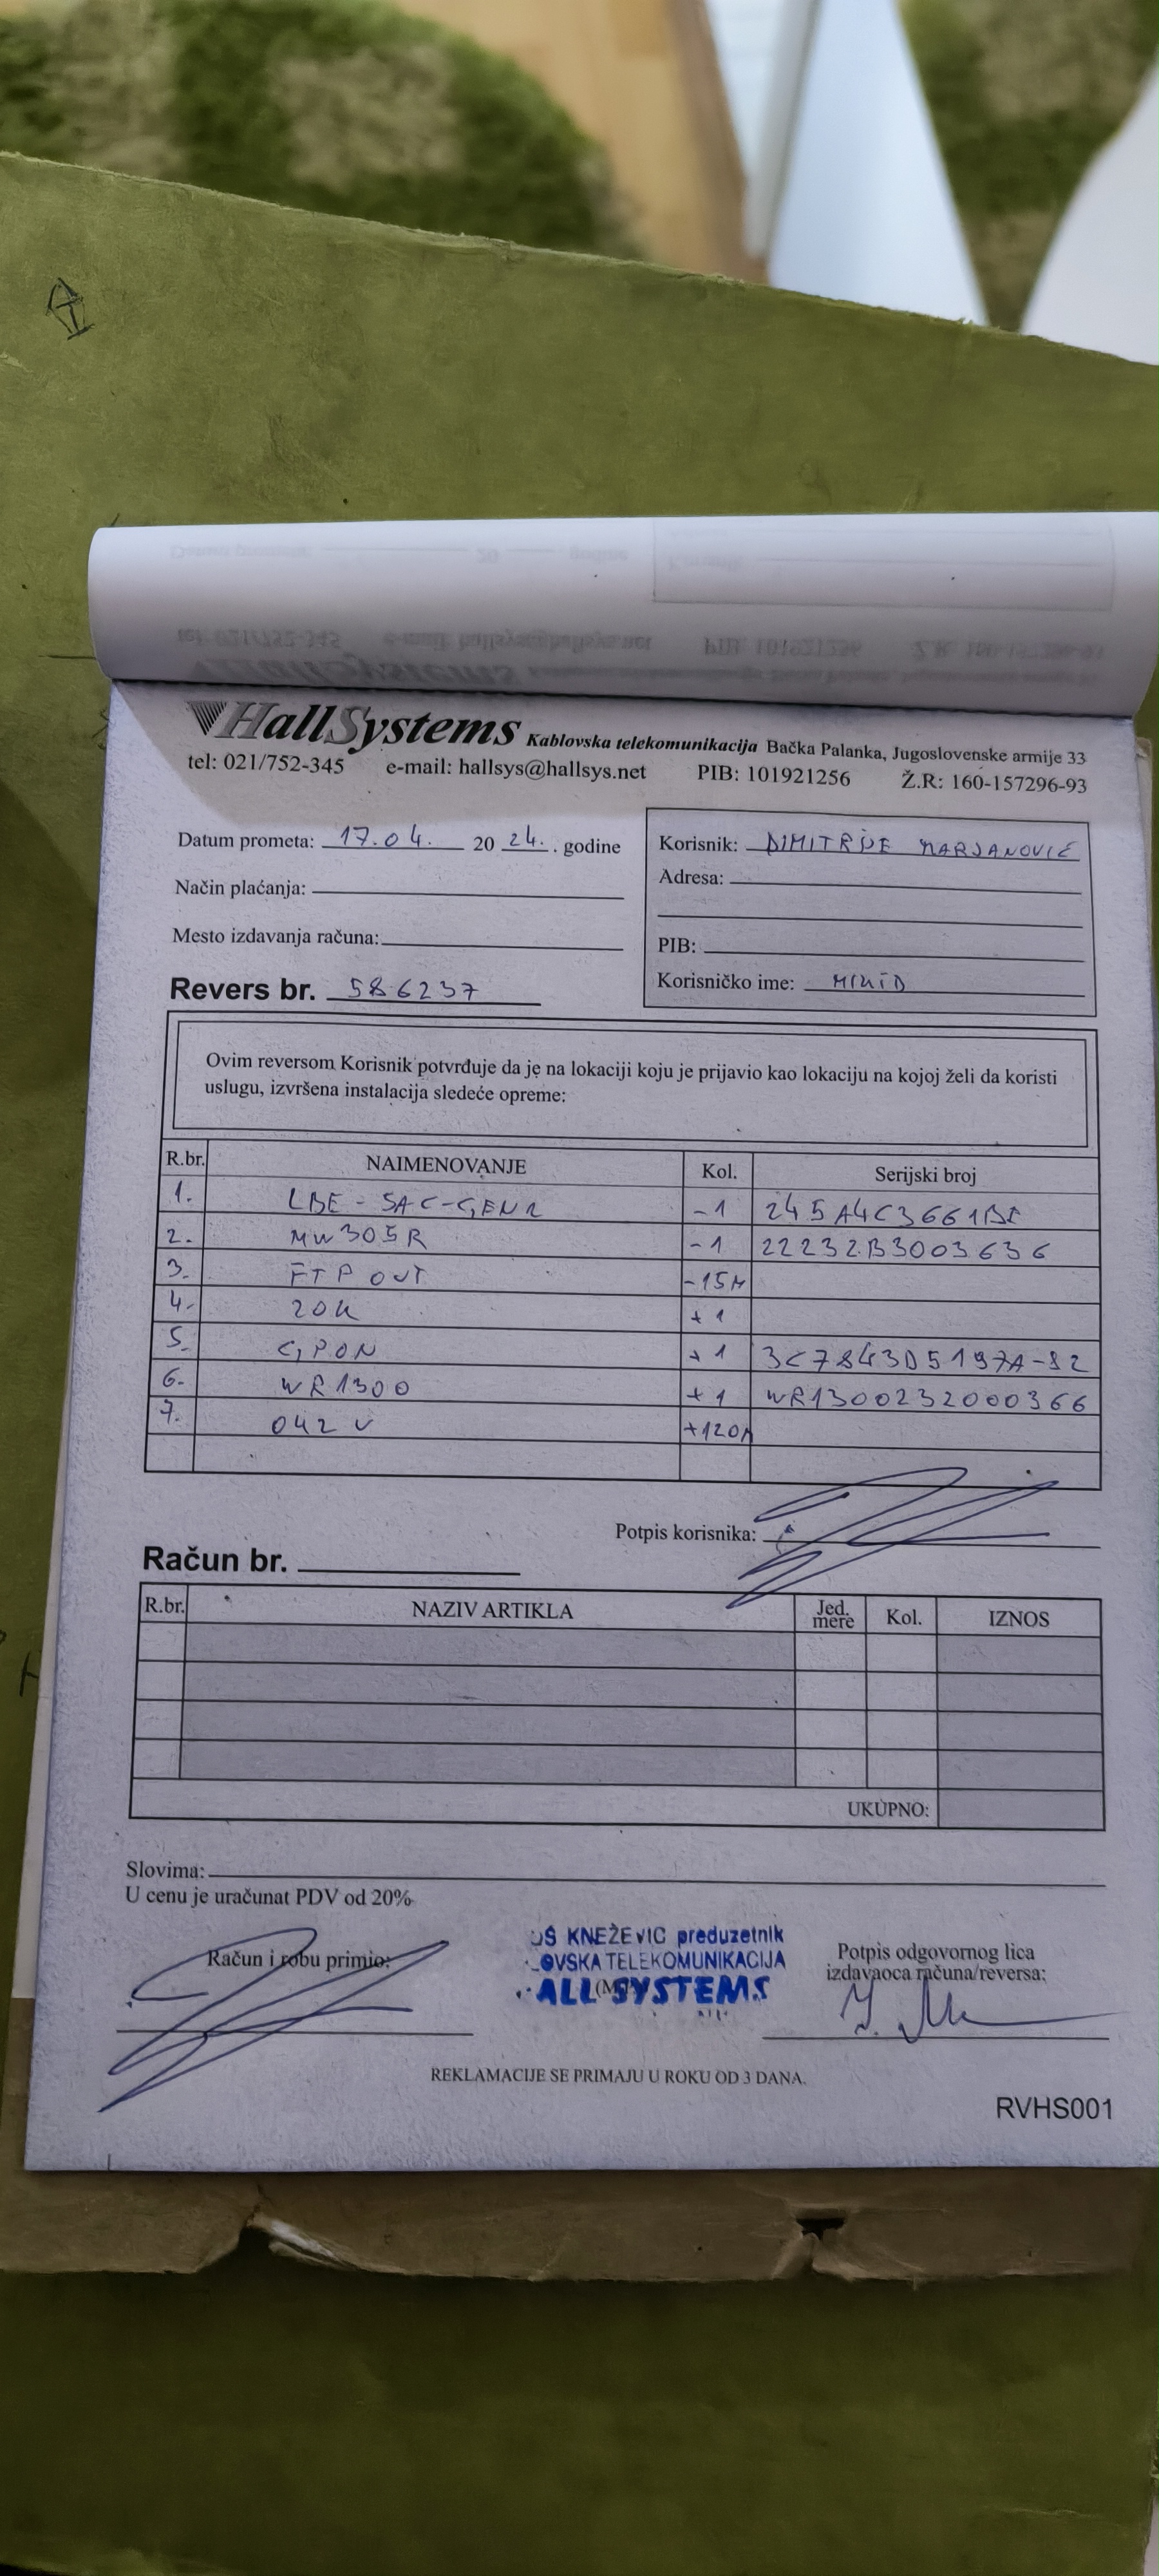 HallSystems Kablovska telekomunikacija Bačka Palanka, Jugoslovenske armije 33
tel: 021/752-345 e-mail: hallsys@hallsys.net PIB: 101921256 Ž.R: 160-157296-93
Datum prometa: 17.04. 20 24. . godine
Korisnik: DIMITRIJE MARJANOVIĆ
Način plaćanja:
Adresa:
Mesto izdavanja računa:
PIB:
Revers br. 586237
Korisničko ime: MIKID
Ovim reversom Korisnik potvrđuje da je na lokaciji koju je prijavio kao lokaciju na kojoj želi da koristi
uslugu, izvršena instalacija sledeće opreme:
R.br. NAIMENOVANJE Kol. Serijski broj
1. LBE-5AC-GEN2 -1
2. MW305R -1 22232B3003636
3. FTP OUT -15M
4. ZOK +1
5. GPON +1 3C7843D5197A-82
6. WR1300 +1 WR1300232000366
7. O42V +120M
Potpis korisnika:
Račun br.
R.br. NAZIV ARTIKLA Jed. mere Kol. IZNOS
UKUPNO:
Slovima:
U cenu je uračunat PDV od 20%
Račun i robu primio:
UŠ KNEŽEVIĆ preduzetnik
LOVSKA TELEKOMUNIKACIJA
ALL SYSTEMS
Potpis odgovornog lica
izdavaoca računa/reversa:
REKLAMACIJE SE PRIMAJU U ROKU OD 3 DANA.
RVHS001